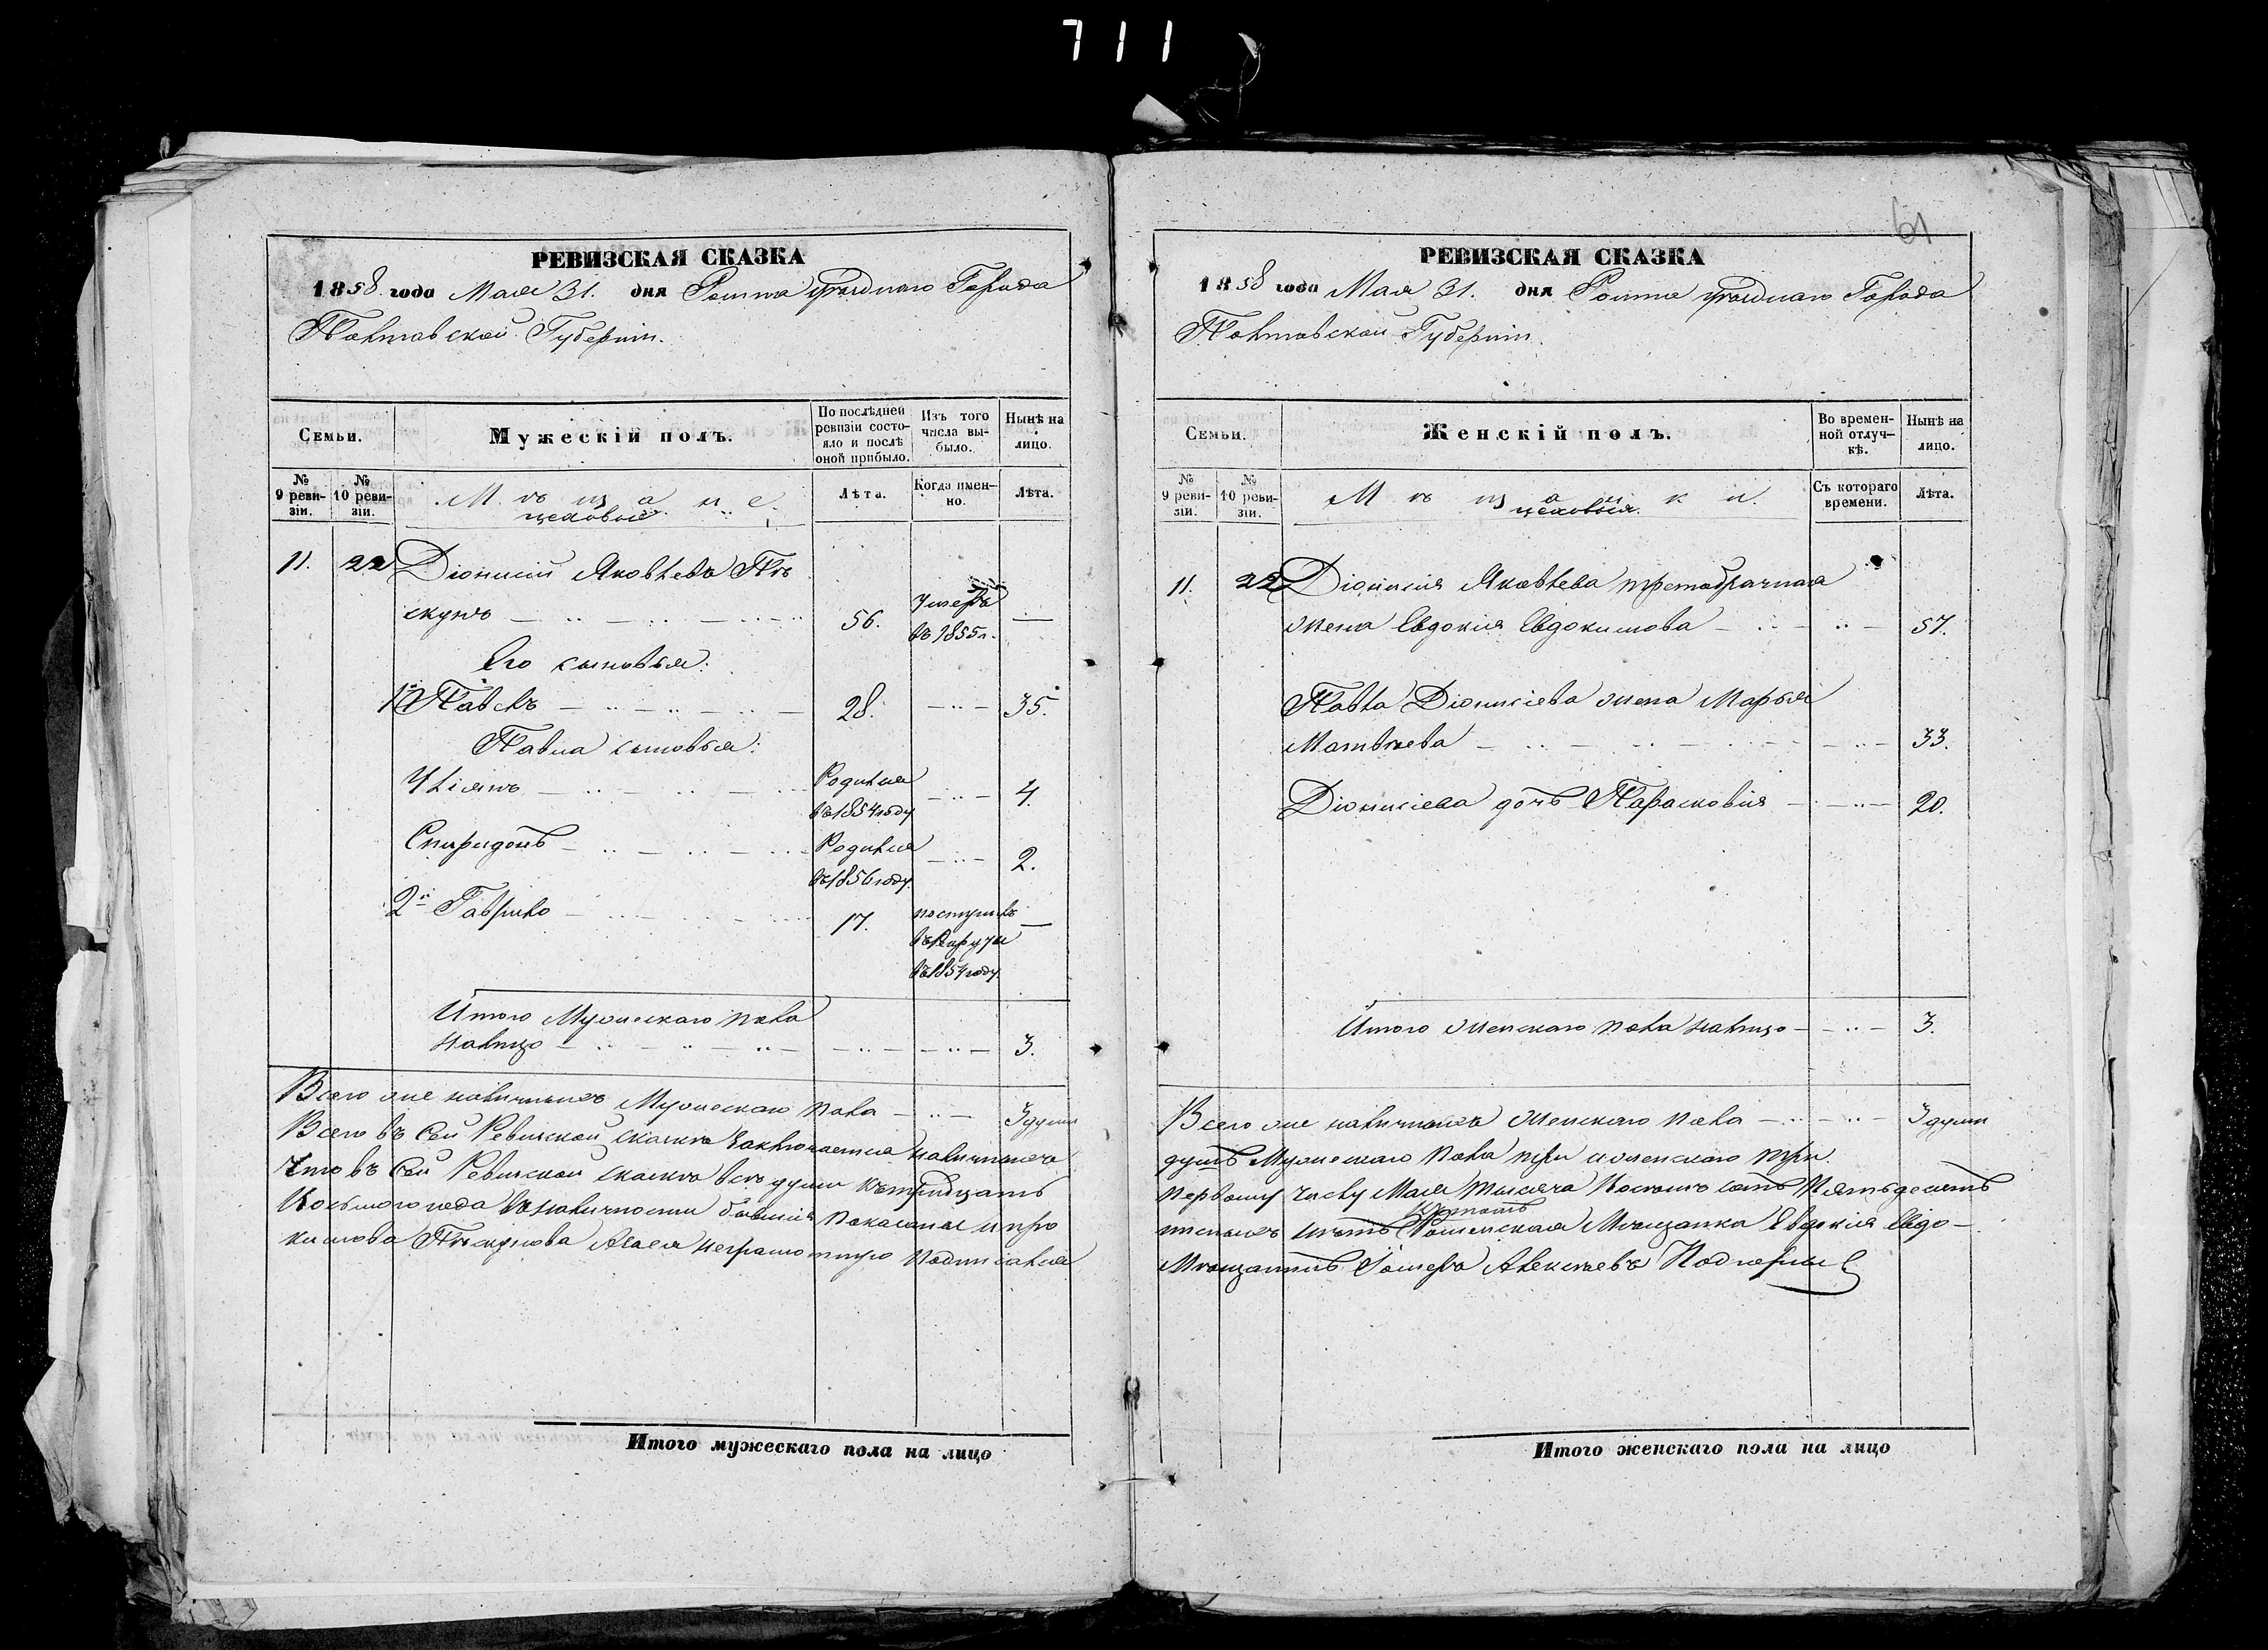 711
РЕВИЗСКАЯ СКАЗКА
1858 года Мая 31. дня Ромна уѣзднаго Города
Полтавской Губерніи.
Семьи.
Мужескій полъ.
По послѣдней ревизіи состояло и послѣ оной прибыло.
Изъ того числа выбыло.
Нынѣ на лицо.
№ 9 ревизіи.
№ 10 ревизіи.
Мѣщане
цеховые
Лѣта.
Когда именно.
Лѣта.
11. 22 Діонисій Яковлевъ
56. Умеръ въ 1855 г. —
Его сыновья:
1й Павелъ 28. — 35.
Павла сыновья:
Уліянъ Родился въ 1854 году — 4.
Спиридонъ Родился въ 1856 году. — 2.
2й Гаврило 17. поступилъ въ Рекруты въ 1854 году. —
Итого Мужескаго пола
налицо — 3.
Всего же наличныхъ Мужескаго пола — 3 души
Всего въ Сей Ревизской сказкѣ заключается наличныхъ
Что въ Сей Ревизской сказкѣ всѣ души къ тридцать
Восьмого года въ наличности бывшія показаны и про
кимова а за нея неграмотную подписался
Итого мужескаго пола на лицо
61
РЕВИЗСКАЯ СКАЗКА
1858 года Мая 31. дня Ромна уѣзднаго Города
Полтавской Губерніи.
Семьи.
Женскій полъ.
Во временной отлучкѣ.
Нынѣ на лицо.
№ 9 ревизіи.
№ 10 ревизіи.
Мѣщанки.
цеховыя.
Съ котораго времени.
Лѣта.
11. 22 Діонисія Яковлева третобрачная
жена Евдокія Евдокимова — 57.
Павла Діонисіева жена Марья
Матвѣева — 33.
Діонисіева дочь Парасковія — 20.
Итого женскаго пола налицо — 3.
Всего же наличныхъ Женскаго пола — 3 души
душъ Мужескаго пола три и женскаго три.
первому числу Мая тысяча Восемь сотъ Пятьдесятъ
нѣтъ Роменская Мѣщанка Евдокія Евдо-
Мѣщанинъ Алексѣевъ
Итого женскаго пола на лицо